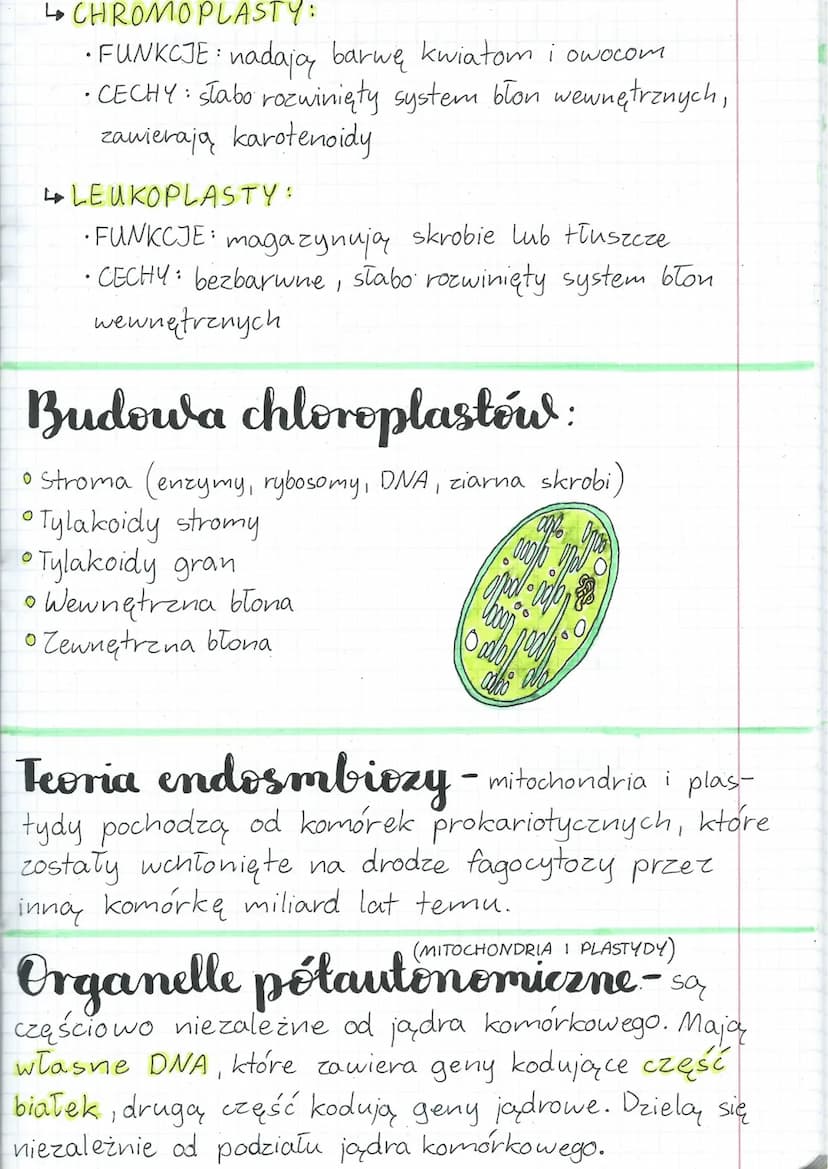 ↳ CHROMOPLASTY:
· FUNKCJE: nadają barwę kwiatom i owocom
· CECHY: słabo rozwinięty system błon wewnętrznych,
zawierają karotenoidy
↳ LEUKOPLASTY:
· FUNKCJE: magazynują skrobie lub tłuszcze
· CECHY: bezbarwne, słabo rozwinięty system błon
wewnętrznych
Budowa chloroplastów:
• Stroma (enzymy, rybosomy, DNA, ziarna skrobi)
• Tylakoidy stromy
• Tylakoidy gran
• Wewnętrzna błona
• Zewnętrzna błona
Teoria endosmbiozy - mitochondria i plas-
tydy pochodzą od komórek prokariotycznych, które
zostały wchłonięte na drodze fagocytozy przez
inną komórkę miliard lat temu.
(MITOCHONDRIA I PLASTYDY)
Organelle półautonomiczne - są
częściowo niezależne od jądra komórkowego. Mają
własne DNA, które zawiera geny kodujące część
białek, drugą część kodują geny jądrowe. Dzielą się
niezależnie od podziału jądra komórkowego.